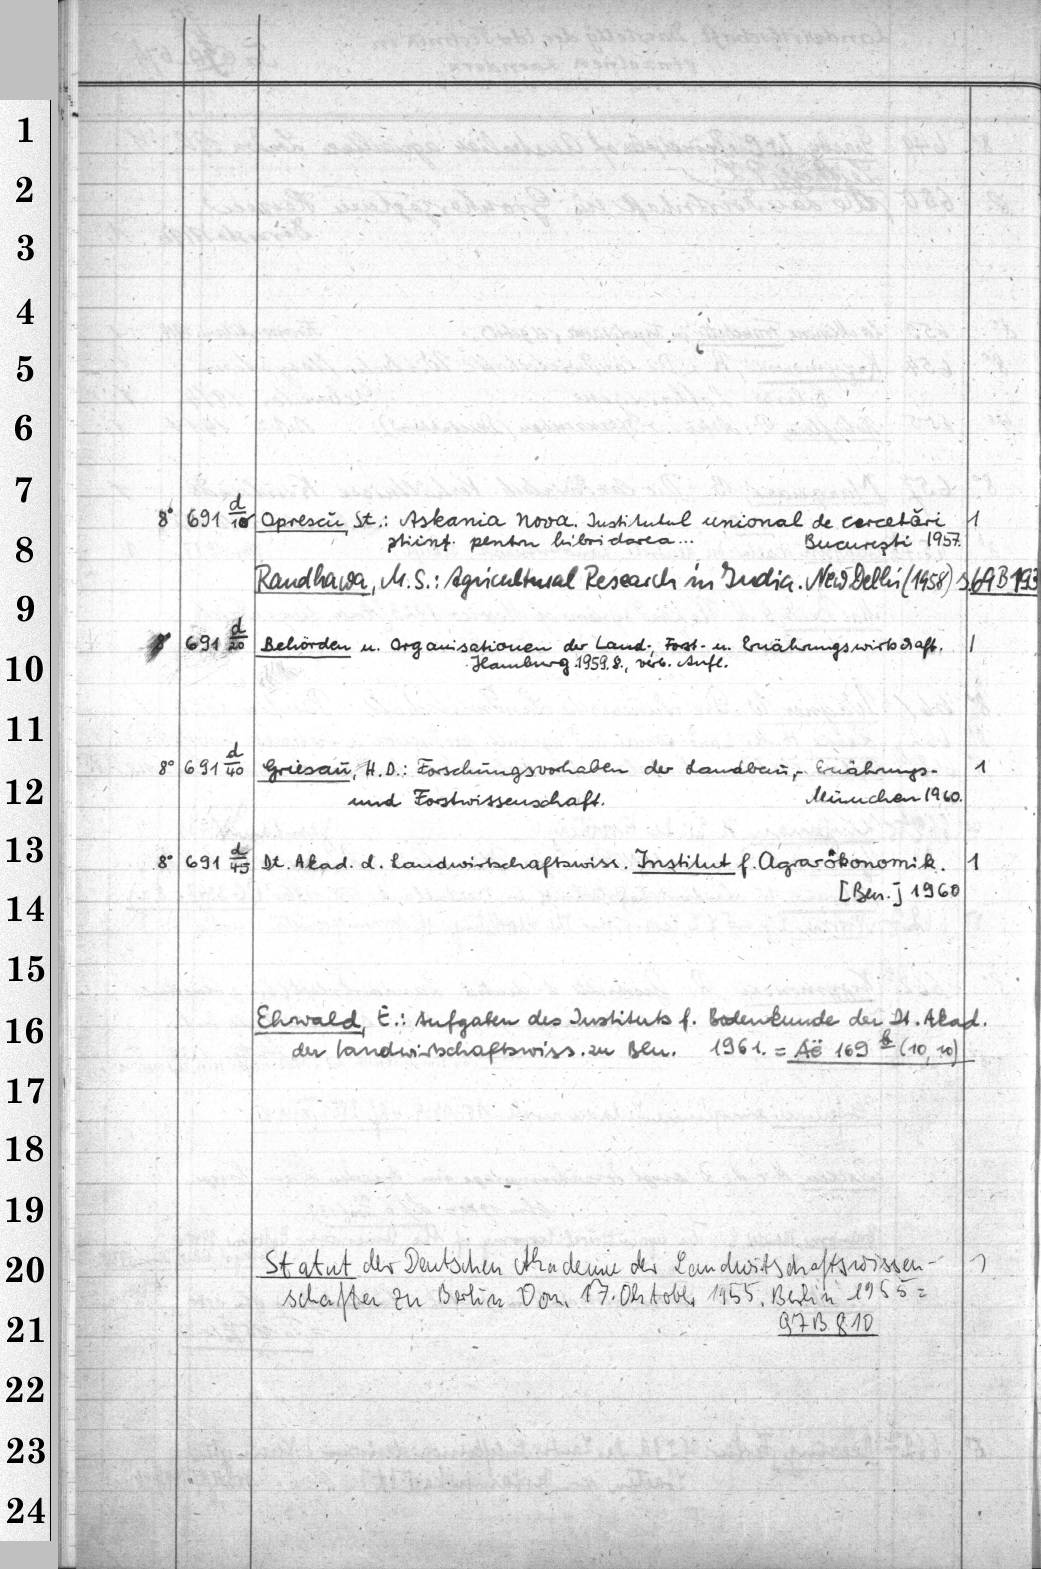 1
2
3
4
5
6
7
8° 691 d/10 Oprescu, St.: Askania Nova. Institutul unional de cercetări 1
8 ştiinţ. pentru hibridarea... Bucureşti 1957.
Randhawa, M.S.: Agricultural Research in India. New Delhi (1958) s. 69 B 193
9
8 691 d/20 Behörden u. Organisationen der Land-, Forst- u. Ernährungswirtschaft. 1
10 Hamburg 1959. 8., verb. Aufl.
11
8° 691 d/40 Griesau, H.D.: Forschungsvorhaben der Landbau-, Ernährungs- 1
12 und Forstwissenschaft. München 1960.
13
8° 691 d/45 Dt. Akad. d. Landwirtschaftswiss. Institut f. Agrarökonomik. 1
[Bln.] 1960
14
15
16 Ehwald, E.: Aufgaben des Instituts f. Bodenkunde der Dt. Akad.
der Landwirtschaftswiss. zu Bln. 1961. = Aë 169 b (10,10)
17
18
19
20 Statut der Deutschen Akademie der Landwirtschaftswissen- 1
schaften zu Berlin Vom 17. Oktober 1955. Berlin 1955 =
21 97 B 810
22
23
24